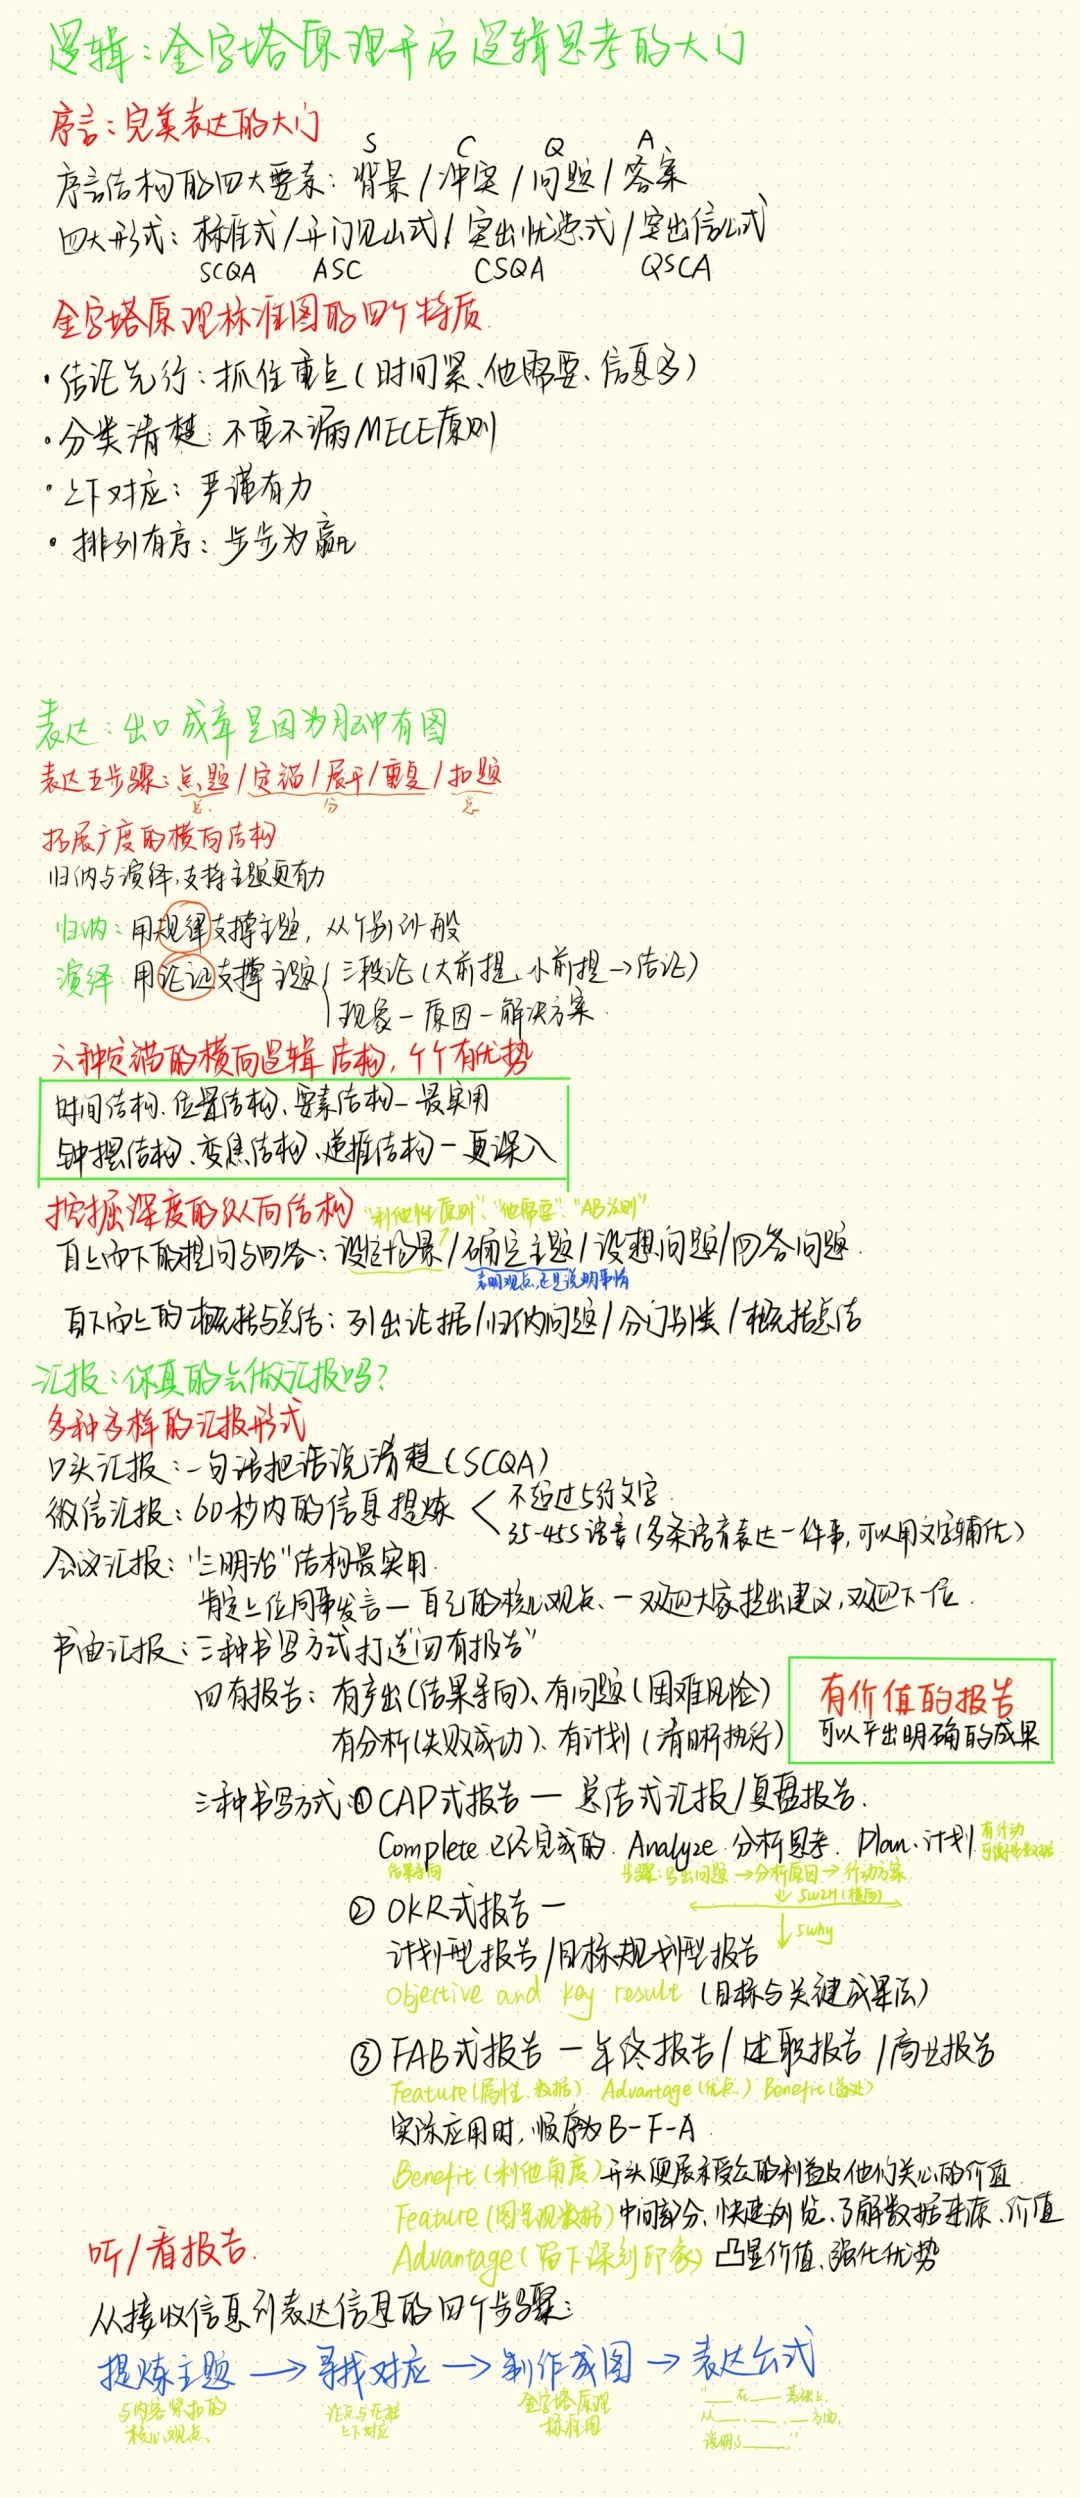 逻辑：金字塔原理开启逻辑思考的大门
序言：完美表达的大门
S C Q A
序言结构的四大要素：背景/冲突/问题/答案
四大形式：标准式/开门见山式/突出忧虑式/突出信心式
SCQA ASC CSQA QSCA
金字塔原理标准图的四个特质
·结论先行：抓住重点(时间紧、他需要、信息多)
·分类清楚：不重不漏MECE原则
·上下对应：严谨有力
·排列有序：步步为赢
表达：出口成章是因为脑中有图
表达五步骤：点题/定锚/展开/重复/扣题
总 分 总
拓展广度的横向结构
归纳与演绎，支持主题更有力
归纳：用规律支撑主题，从个别到一般
演绎：用论证支撑主题 三段论(大前提、小前提→结论)
现象—原因—解决方案
六种定锚的横向逻辑结构，个个有优势
时间结构、位置结构、要素结构—最实用
钟摆结构、变焦结构、递推结构—更深入
挖掘深度的纵向结构 "利他性原则"、"他需要"、"AB法则"
自上而下的提问与回答：设定场景/确定主题/设想问题/回答问题
表明观点，还是说明事情
自下而上的概括与总结：列出论据/归纳问题/分门别类/概括总结
汇报：你真的会做汇报吗?
多种多样的汇报形式
口头汇报：一句话把话说清楚(SCQA)
微信汇报：60秒内的信息提炼 < 不超过5行文字
35-45S语音(多条语音表达一件事,可以用文字辅佐)
会议汇报："三明治"结构最实用
肯定上位同事发言—自己的核心观点、—欢迎大家提出建议,欢迎下一位.
书面汇报：三种书写方式打造"四有报告"
四有报告：有产出(结果导向)、有问题(困难风险)
有分析(失败成功)、有计划(清晰执行)
有价值的报告
可以产出明确的成果
三种书写方式：①CAP式报告—总结式汇报/复盘报告.
Complete.已经完成的. Analyze.分析思考. Plan.计划 有行动
结果导向 步骤：写出问题→分析原因→行动方案
↓5W2H(横向)
② OKR式报告—
↓5Why
计划型报告/目标规划型报告
Objective and key result (目标与关键成果法)
③ FAB式报告—年终报告/述职报告/商业报告
Feature(属性、数据) Advantage(优点) Benefit(益处)
实际应用时，顺序为B-F-A
Benefit(利他角度)开头便展示受众的利益及他们关心的价值
Feature(图呈现数据)中间部分、快速浏览、了解数据来源、价值
Advantage(留下深刻印象)凸显价值、强化优势
听/看报告.
从接收信息到表达信息的四个步骤：
提炼主题→寻找对应→制作成图→表达公式
与内容紧扣的核心观点、
论点与论据上下对应
金字塔原理标准图
"___在___基础上，
从___、___、___方面，
说明了____"